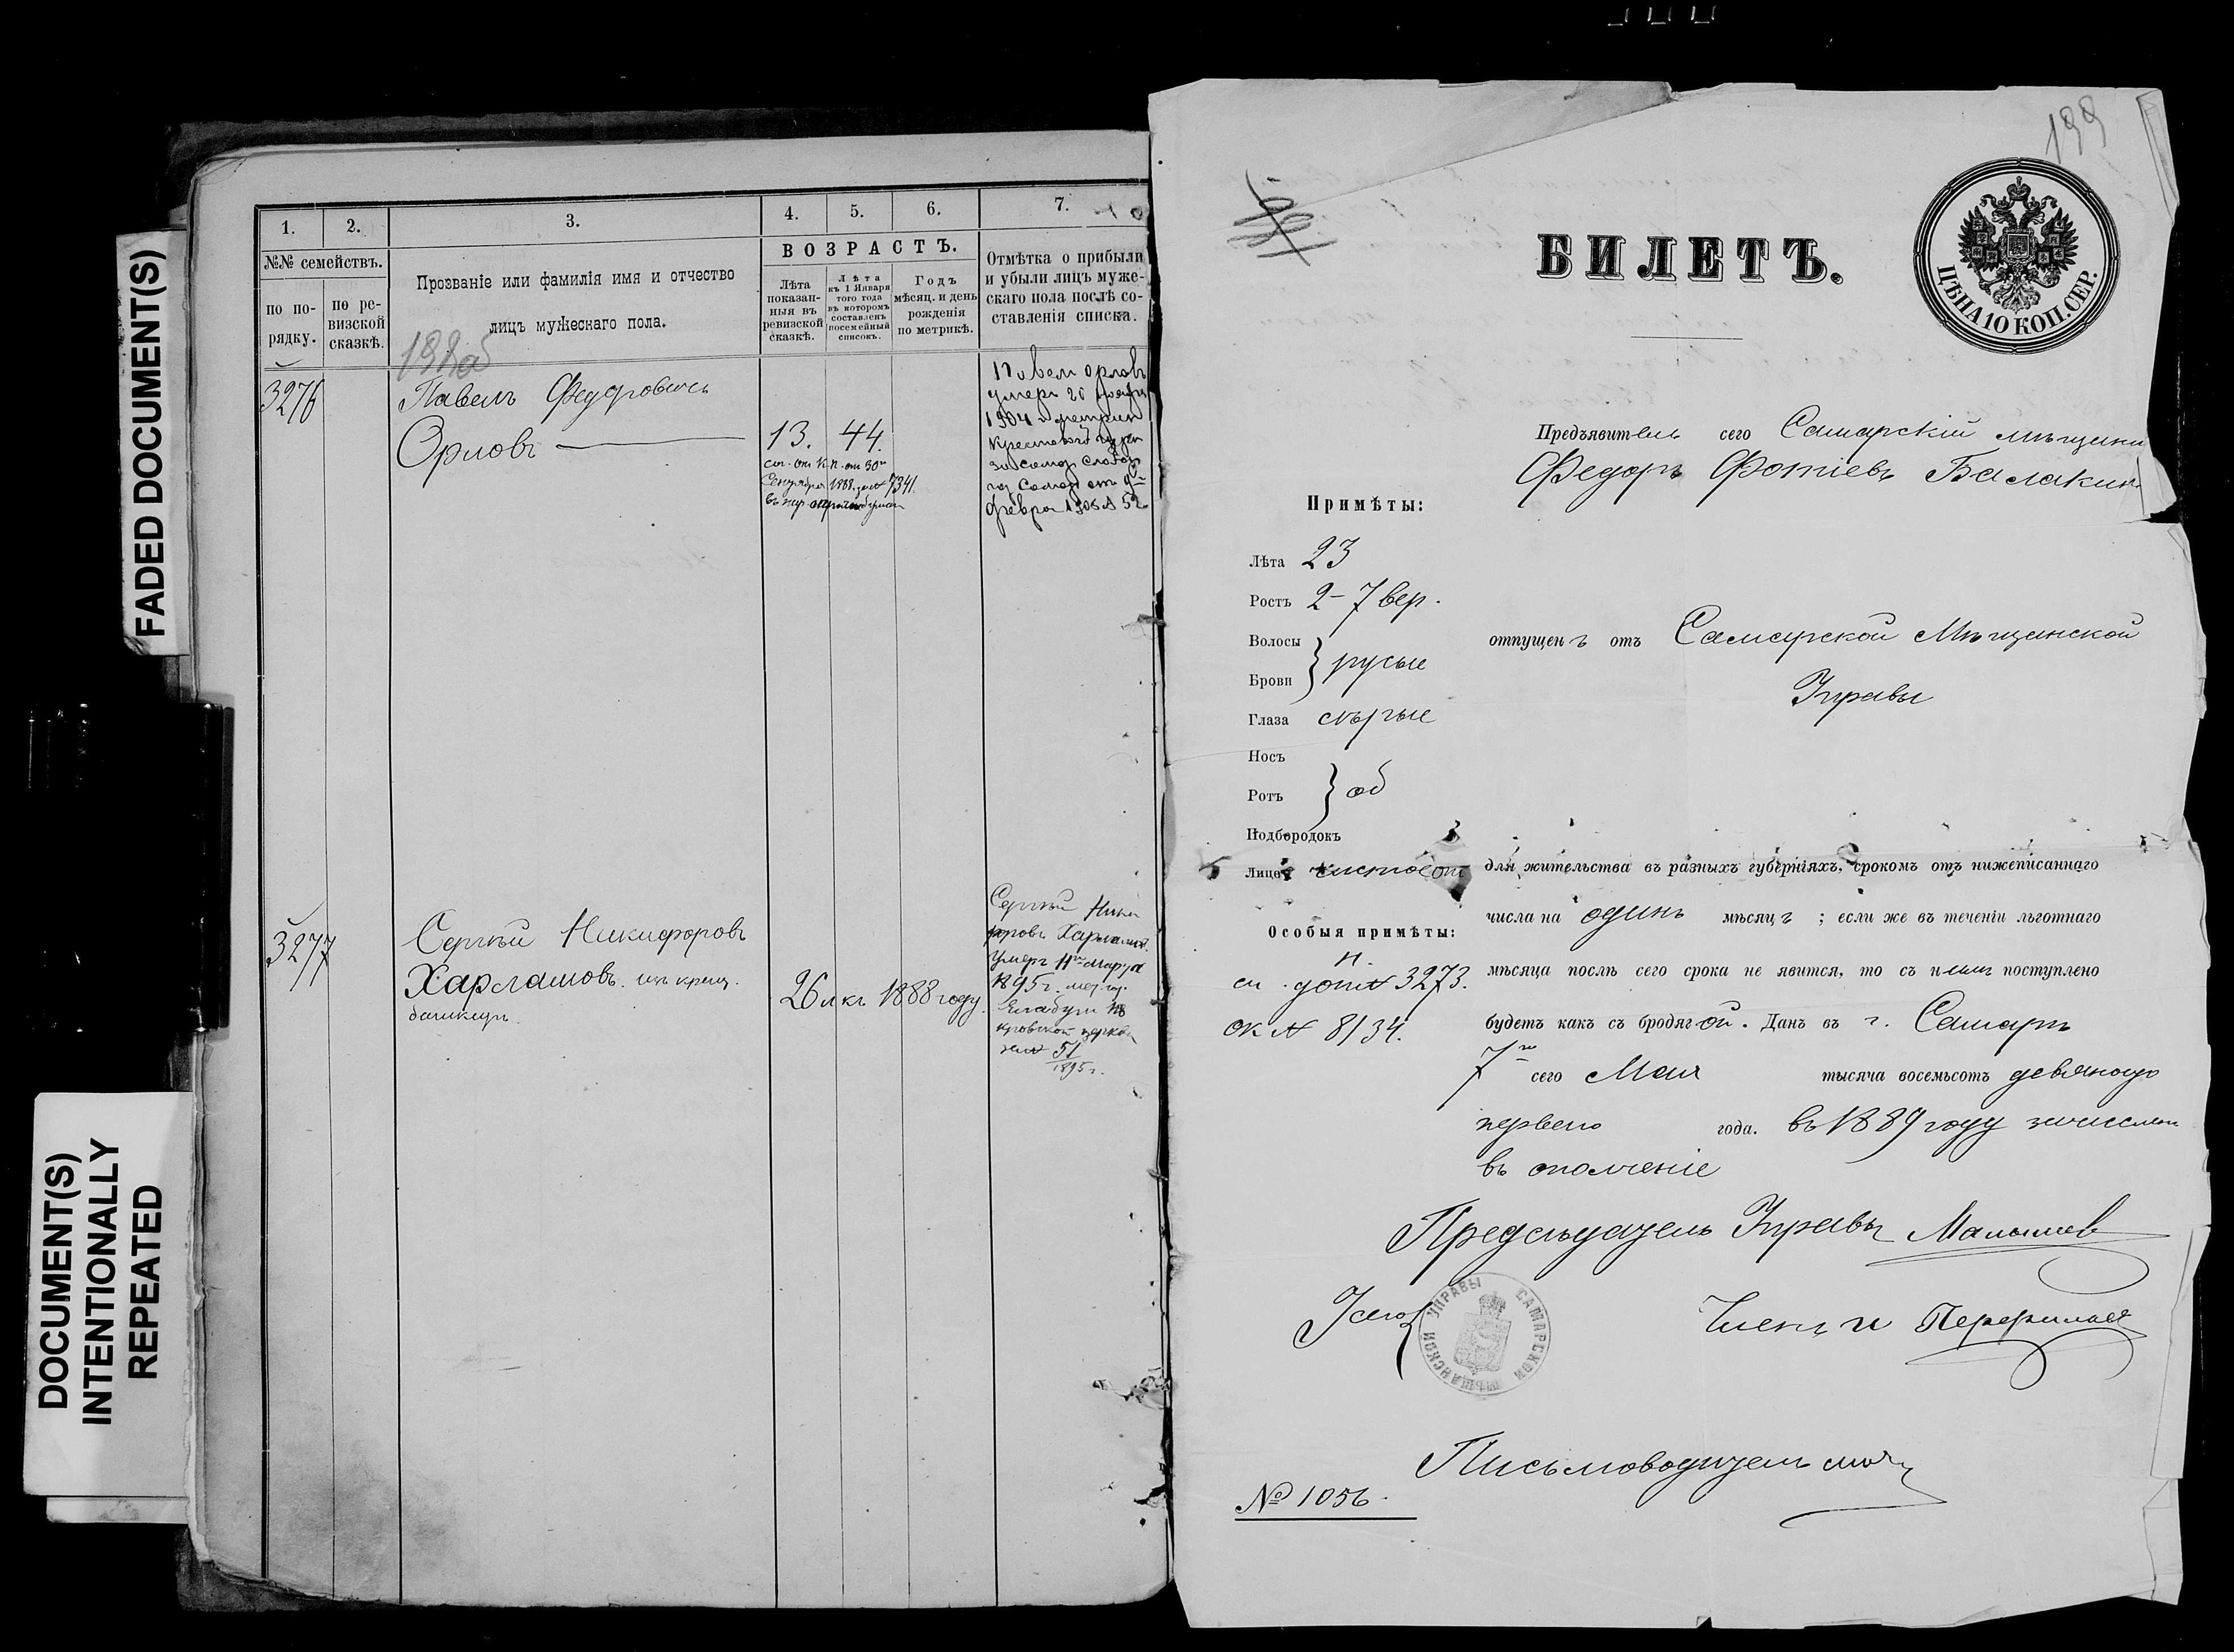 FADED DOCUMENT(S)
DOCUMENT(S)
INTENTIONALLY
REPEATED
1. 2. 3. 4. 5. 6. 7.
№№ семействъ.
по по-
рядку.
по ре-
визской
сказкѣ.
Прозваніе или фамилія имя и отчество
лицъ мужескаго пола.
ВОЗРАСТЪ.
Лѣта
показан-
ныя въ
ревизской
сказкѣ.
Лѣта
къ 1 Января
того года
въ которомъ
составленъ
посемейный
списокъ.
Годъ
мѣсяц. и день
рожденія
по метрикѣ.
Отмѣтка о прибыли
и убыли лицъ муже-
скаго пола послѣ со-
ставленія списка.
3276
Павелъ Федоровичъ
Орловъ
13. 44.
Сентября 1888
Павелъ Орловъ
умеръ 20
1904
3277
Сергѣй Никифоровъ
Харламовъ. изъ крещ.
26 л къ 1888 году.
Сергѣй Ники
форовъ Харламов.
умеръ 11го Марта
1895 г.
Елабуги По
кровской церкви
за № 51
1895 г.
199
БИЛЕТЪ.
ЦѢНА 10 КОП. СЕР.
Предъявитель сего Самарскій мѣщани
Федоръ Фотіевъ Балакин
Примѣты:
Лѣта 23
Ростъ 2-7 вер.
Волосы
Брови
русые
Глаза сѣрые
Носъ
Ротъ
Подбородокъ
об
Лице чистое
Особыя примѣты:
3273.
ок № 8134.
отпущенъ отъ Самарской Мѣщанской
Управы
для жительства въ разныхъ губерніяхъ, срокомъ отъ нижеписаннаго
числа на одинъ мѣсяцъ; если же въ теченіи льготнаго
мѣсяца послѣ сего срока не явится, то съ нимъ поступлено
будетъ какъ съ бродягой. Данъ въ г. Самарѣ
7го сего Мая тысяча восемьсотъ девяносто
перваго года. въ 1889 году зачислен
въ ополченіе
Предсѣдатель Управы Малышев
САМАРСКОЙ МѢЩАНСКОЙ УПРАВЫ
Члены
Письмоводитель
№ 1056.